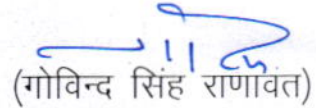 (गोविन्द सिंह राणावत)